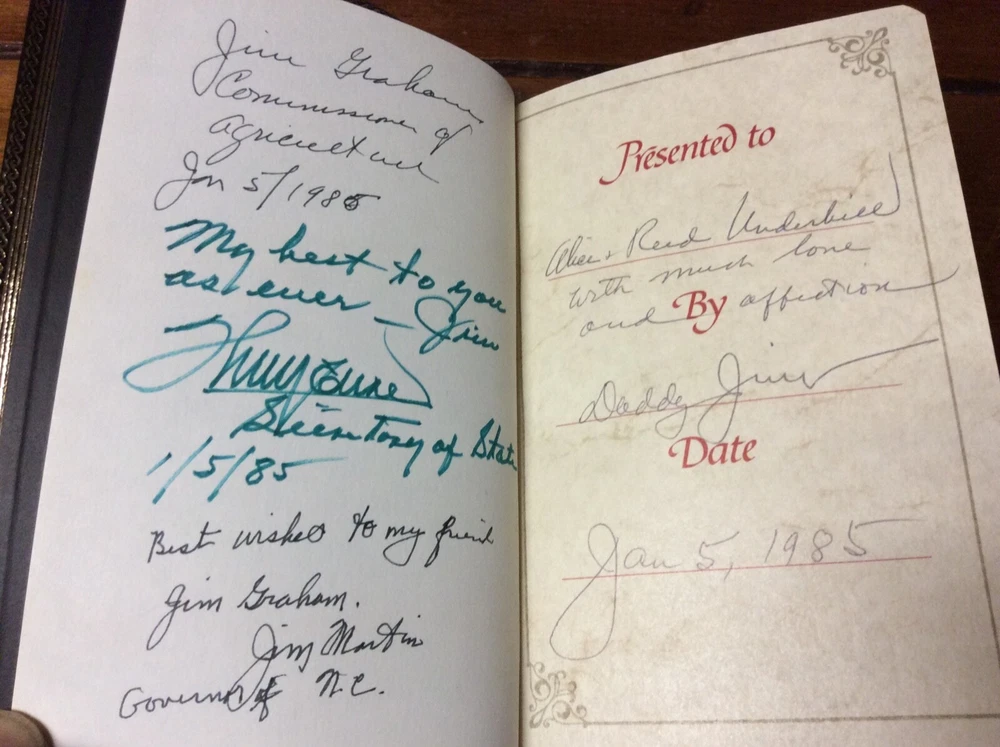 Jim Graham
Commissioner of
Agriculture
Jan 5/1985
My best to you
as ever – Jim
Thad Eure
Secretary of State
1/5/85
Best wishes to my friend
Jim Graham.
Jim Martin
Governor of N.C.
Presented to
Alice + Reid Underhill
with much love
and affection
By
Daddy Jim
Date
Jan 5, 1985